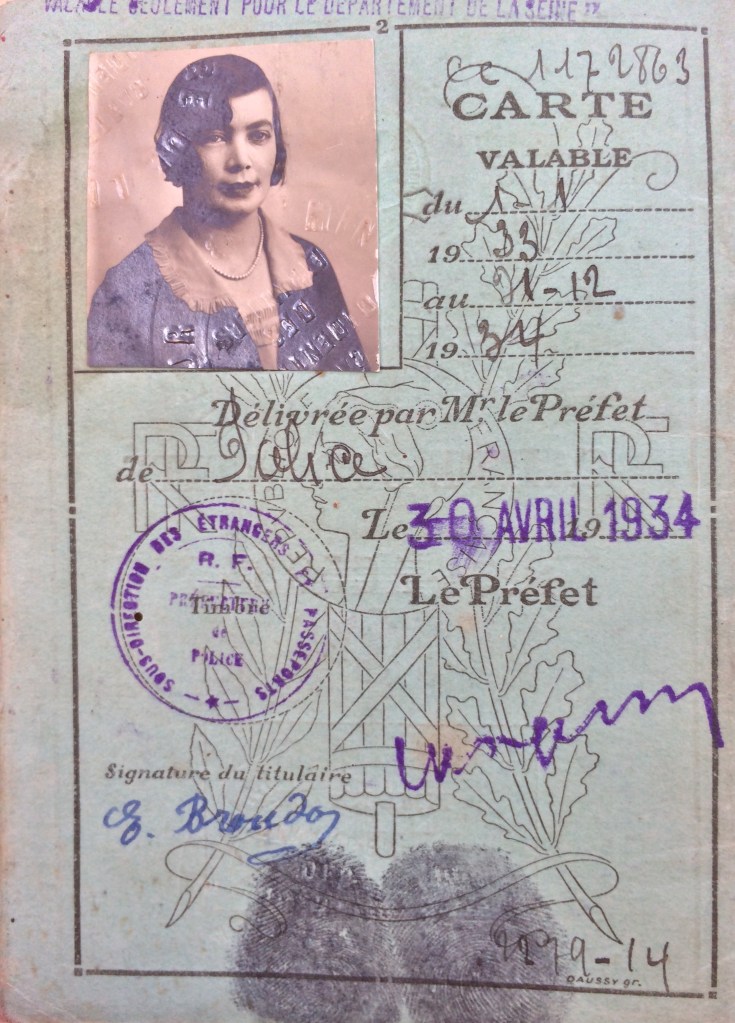 VALABLE SEULEMENT POUR LE DEPARTEMENT DE LA SEINE
2
1172863
CARTE
VALABLE
du 1-1
1933
au 31-12
1934
Délivrée par Mr. le Préfet
de Police
Le 30 AVRIL 1934
19
Le Préfet
SOUS-DIRECTION DES ÉTRANGERS PASSEPORTS
R. F.
PRÉFECTURE
Timbre
de
POLICE
Signature du titulaire
79-14
DAUSSY gr.